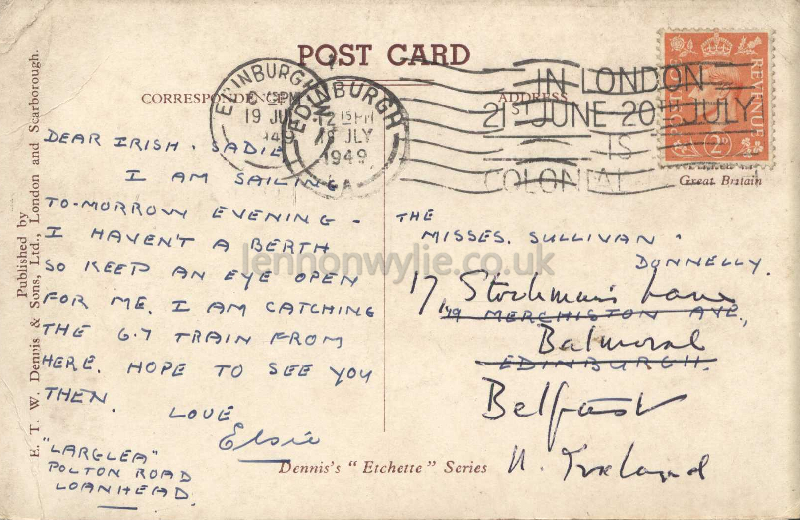 POST CARD
CORRESPONDENCE
ADDRESS
EDINBURGH
19 JUL
1949
EDINBURGH
12 15 PM
19 JLY
1949
IN LONDON
21ST JUNE-20TH JULY
IS
COLONIAL
REVENUE
2D
Great Britain
DEAR IRISH - SADIE
I AM SAILING
TO-MORROW EVENING -
I HAVEN'T A BERTH
SO KEEP AN EYE OPEN
FOR ME. I AM CATCHING
THE 6.7 TRAIN FROM
HERE. HOPE TO SEE YOU
THEN.
LOVE
Elsie
"LARGLEA"
POLTON ROAD
LOANHEAD.
THE
MISSES. SULLIVAN -
DONNELLY.
17, Stockman's Lane
MERCHISTON AVE,
Balmoral
EDINBURGH.
Belfast
N. Ireland
Dennis's "Etchette" Series
Published by
E. T. W. Dennis & Sons, Ltd., London and Scarborough.
lennonwylie.co.uk